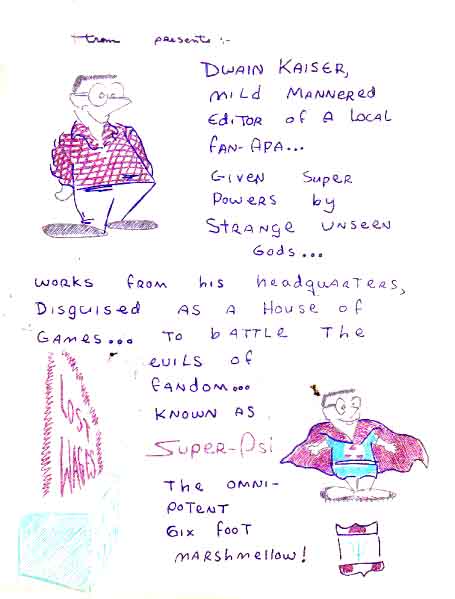 presents :-
DWAIN KAISER,
MILD MANNERED
EDITOR of A LOCAL
fAN-APA...
GIVEN Super
Powers by
STRANGE UNSEEN
Gods...
WORKS FROM his headquARTERS,
DISGUISED AS A HOUSE of
GAMES... TO bATTLE The
EVILS of
fANdom...
KNOWN AS
Super-Psi
The OMNI-
POTENT
Six fooT
MARShmellow!
LOST
WAGES